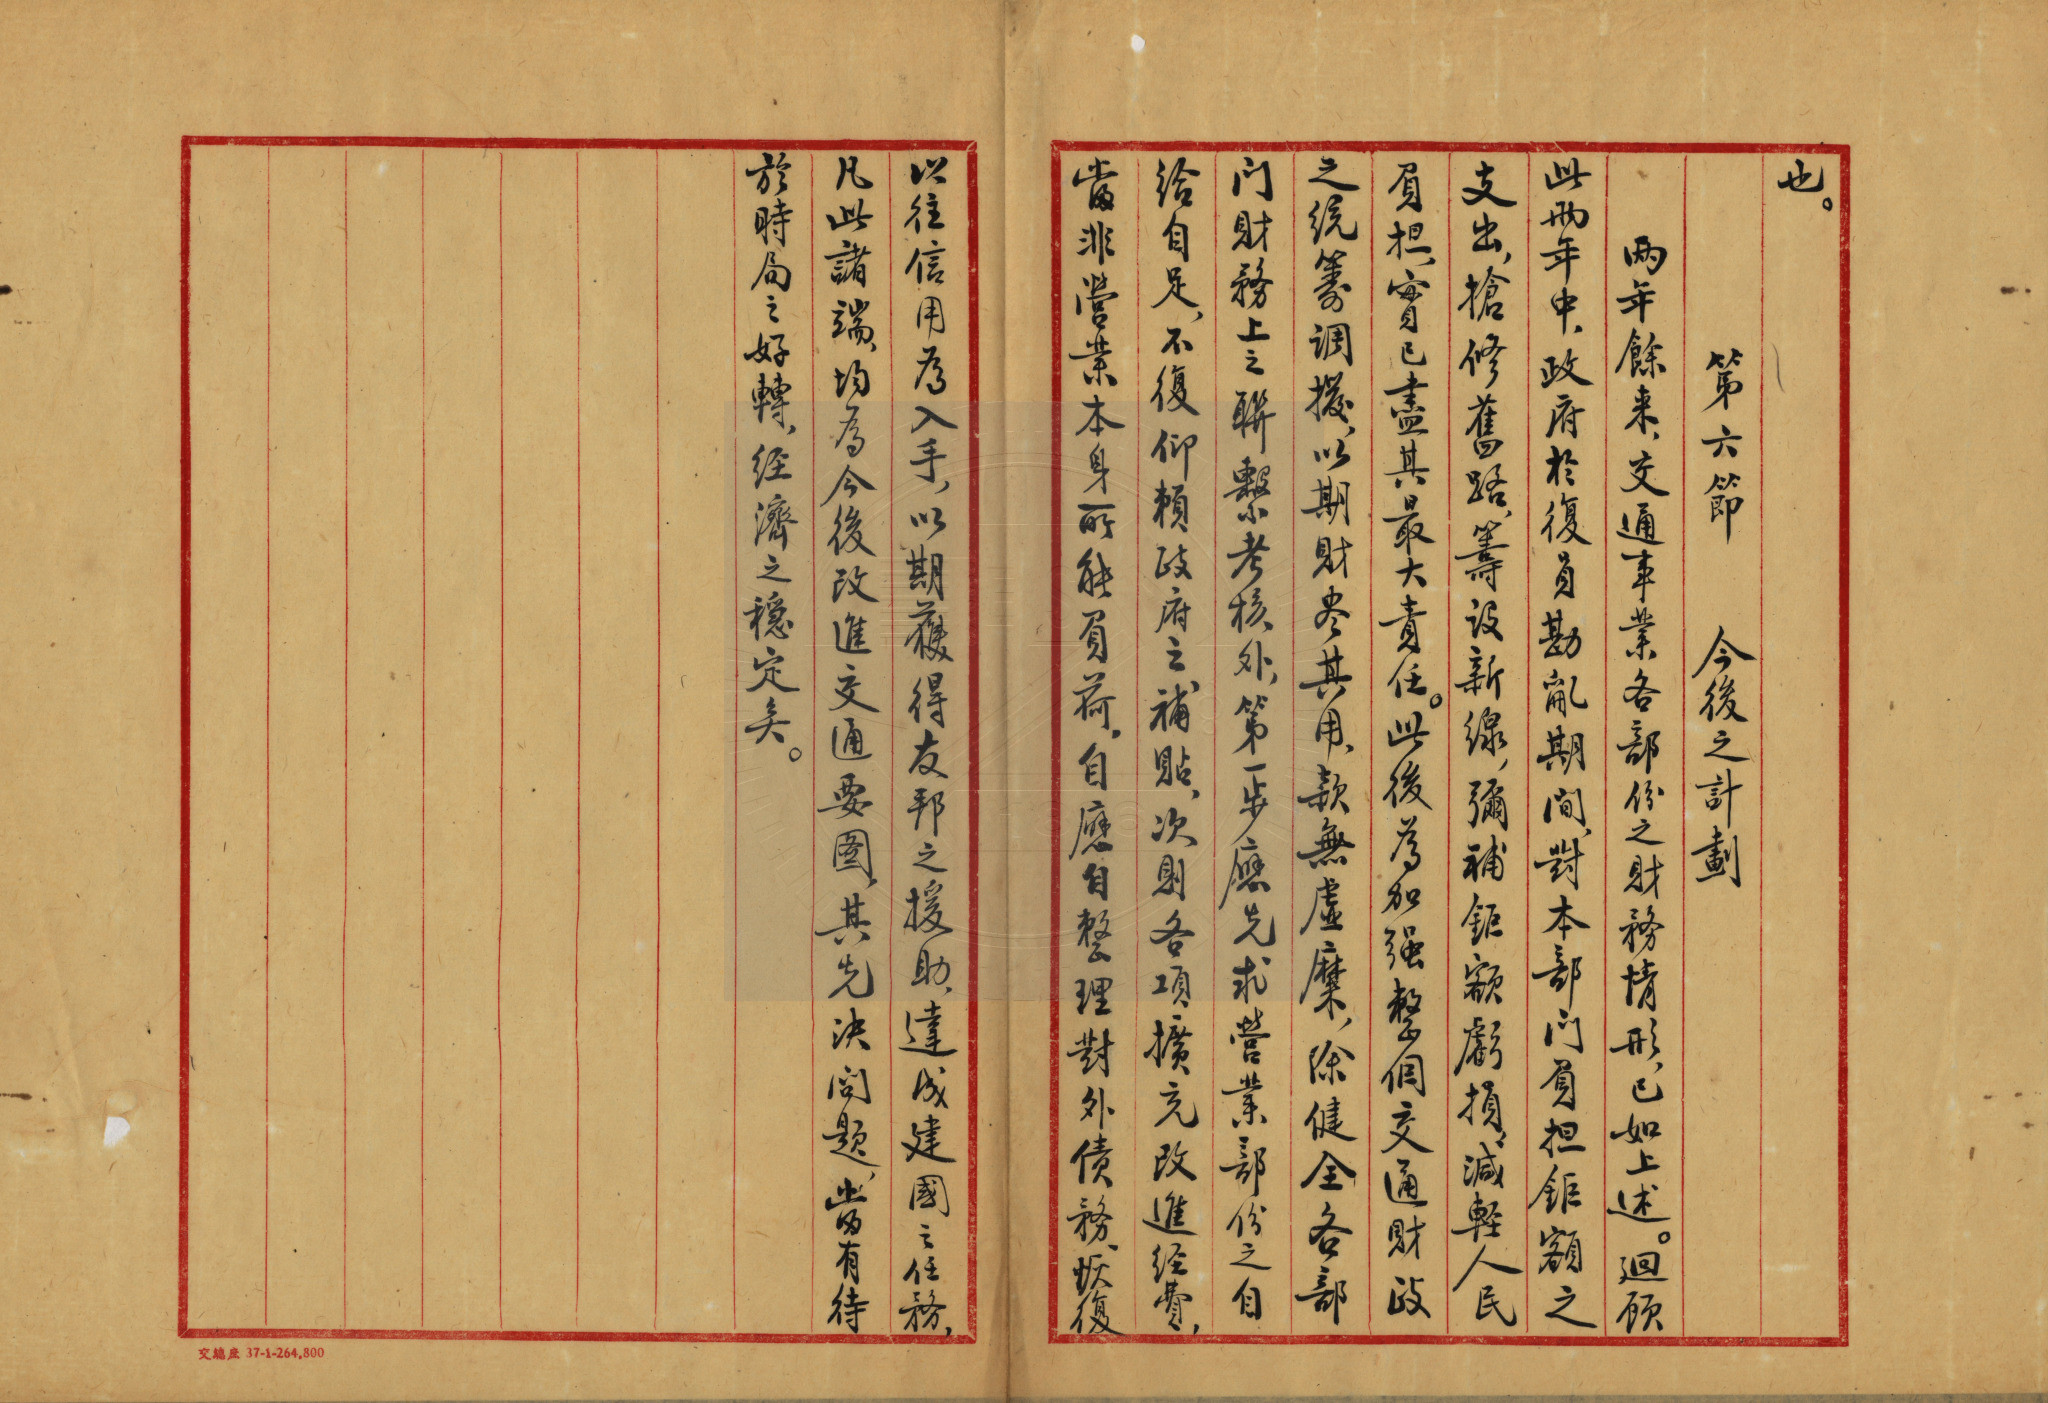 也。
第六節　今後之計劃
兩年餘來，交通事業各部份之財務情形，已如上述。迴顧
此兩年中，政府於復員勘亂期間，對本部門負担鉅額之
支出，搶修舊路，籌設新線，彌補鉅額虧損，減輕人民
負担，實已盡其最大責任。此後為加强整個交通財政
之統籌調撥，以期財尽其用，款無虛糜，除健全各部
門財務上之聯繫考核外，第一步應先求營業部份之自
給自足，不復仰賴政府之補貼，次則各項擴充改進經費，
當非營業本身所能負荷，自應自整理對外債務，恢復
以往信用為入手，以期獲得友邦之援助，達成建國之任務，
凡此諸端，均為今後改進交通要圖，其先決問題，當有待
於時局之好轉，經濟之穩定矣。
交總庶 37-1-264,800